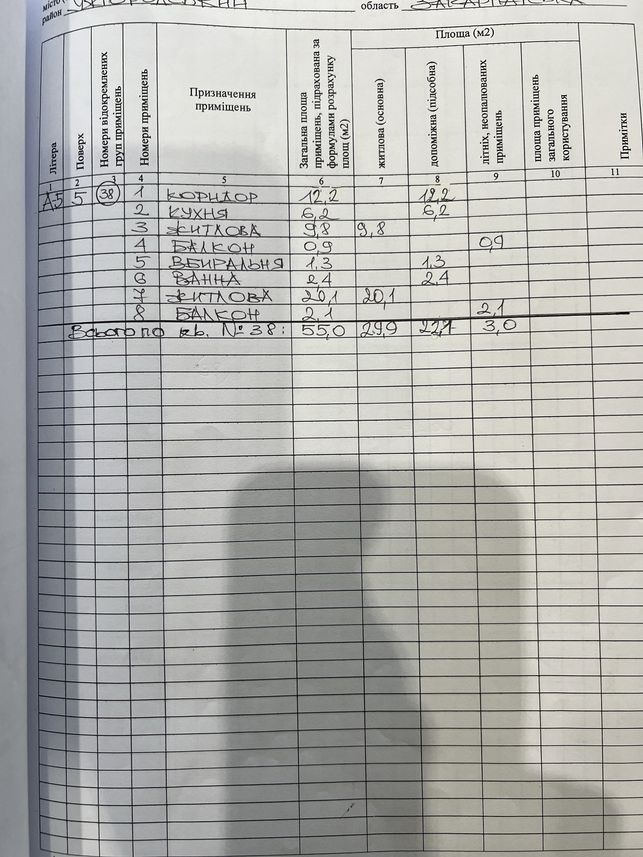 місто
район УЖГОРОДСЬКИЙ область ЗАКАРПАТСЬКА
Літера
Поверх
Номери відокремлених груп приміщень
Номери приміщень
Призначення приміщень
Загальна площа приміщень, підрахована за формулами розрахунку площ (м2)
Площа (м2)
житлова (основна)
допоміжна (підсобна)
літніх, неопалюваних приміщень
площа приміщень загального користування
Примітки
1 2 3 4 5 6 7 8 9 10 11
А,5 5 38 1 КОРИДОР 12,2 12,2
2 КУХНЯ 6,2 6,2
3 ЖИТЛОВА 9,8 9,8
4 БАЛКОН 0,9 0,9
5 ВБИРАЛЬНЯ 1,3 1,3
6 ВАННА 2,4 2,4
7 ЖИТЛОВА 20,1 20,1
8 БАЛКОН 2,1 2,1
Всього по кв. № 38: 55,0 29,9 22,1 3,0